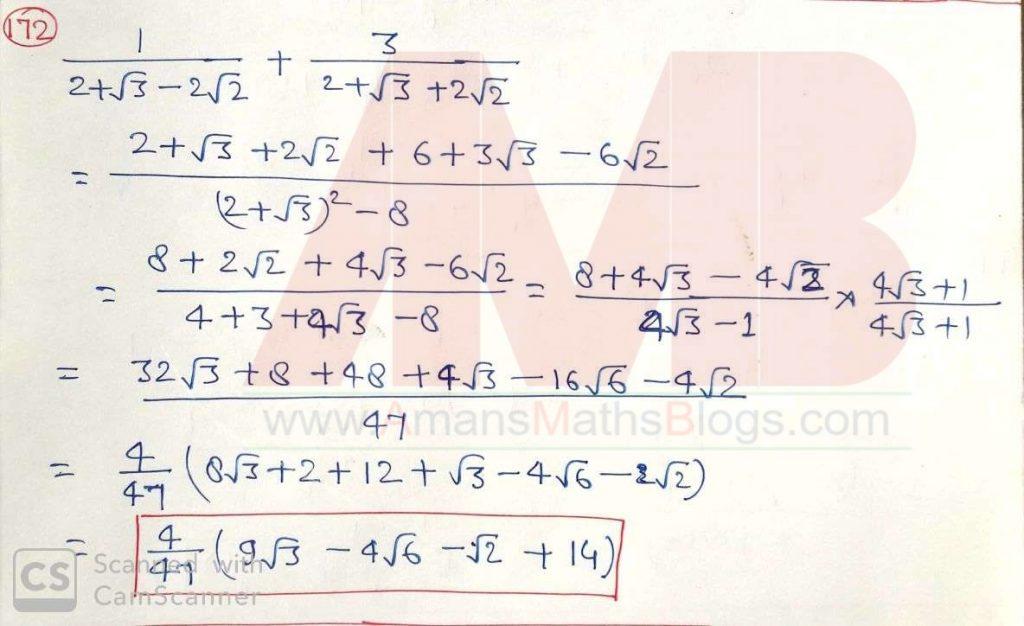 172
1/(2+√3−2√2) + 3/(2+√3+2√2)
= (2+√3+2√2+6+3√3−6√2)/((2+√3)²−8)
= (8+2√2+4√3−6√2)/(4+3+4√3−8) = (8+4√3−4√2)/(4√3−1) × (4√3+1)/(4√3+1)
= (32√3+8+48+4√3−16√6−4√2)/47
www.AmansMathsBlogs.com
= 4/47 (8√3+2+12+√3−4√6−√2)
= 4/47 (9√3−4√6−√2+14)
AMB
CS Scanned with
CamScanner